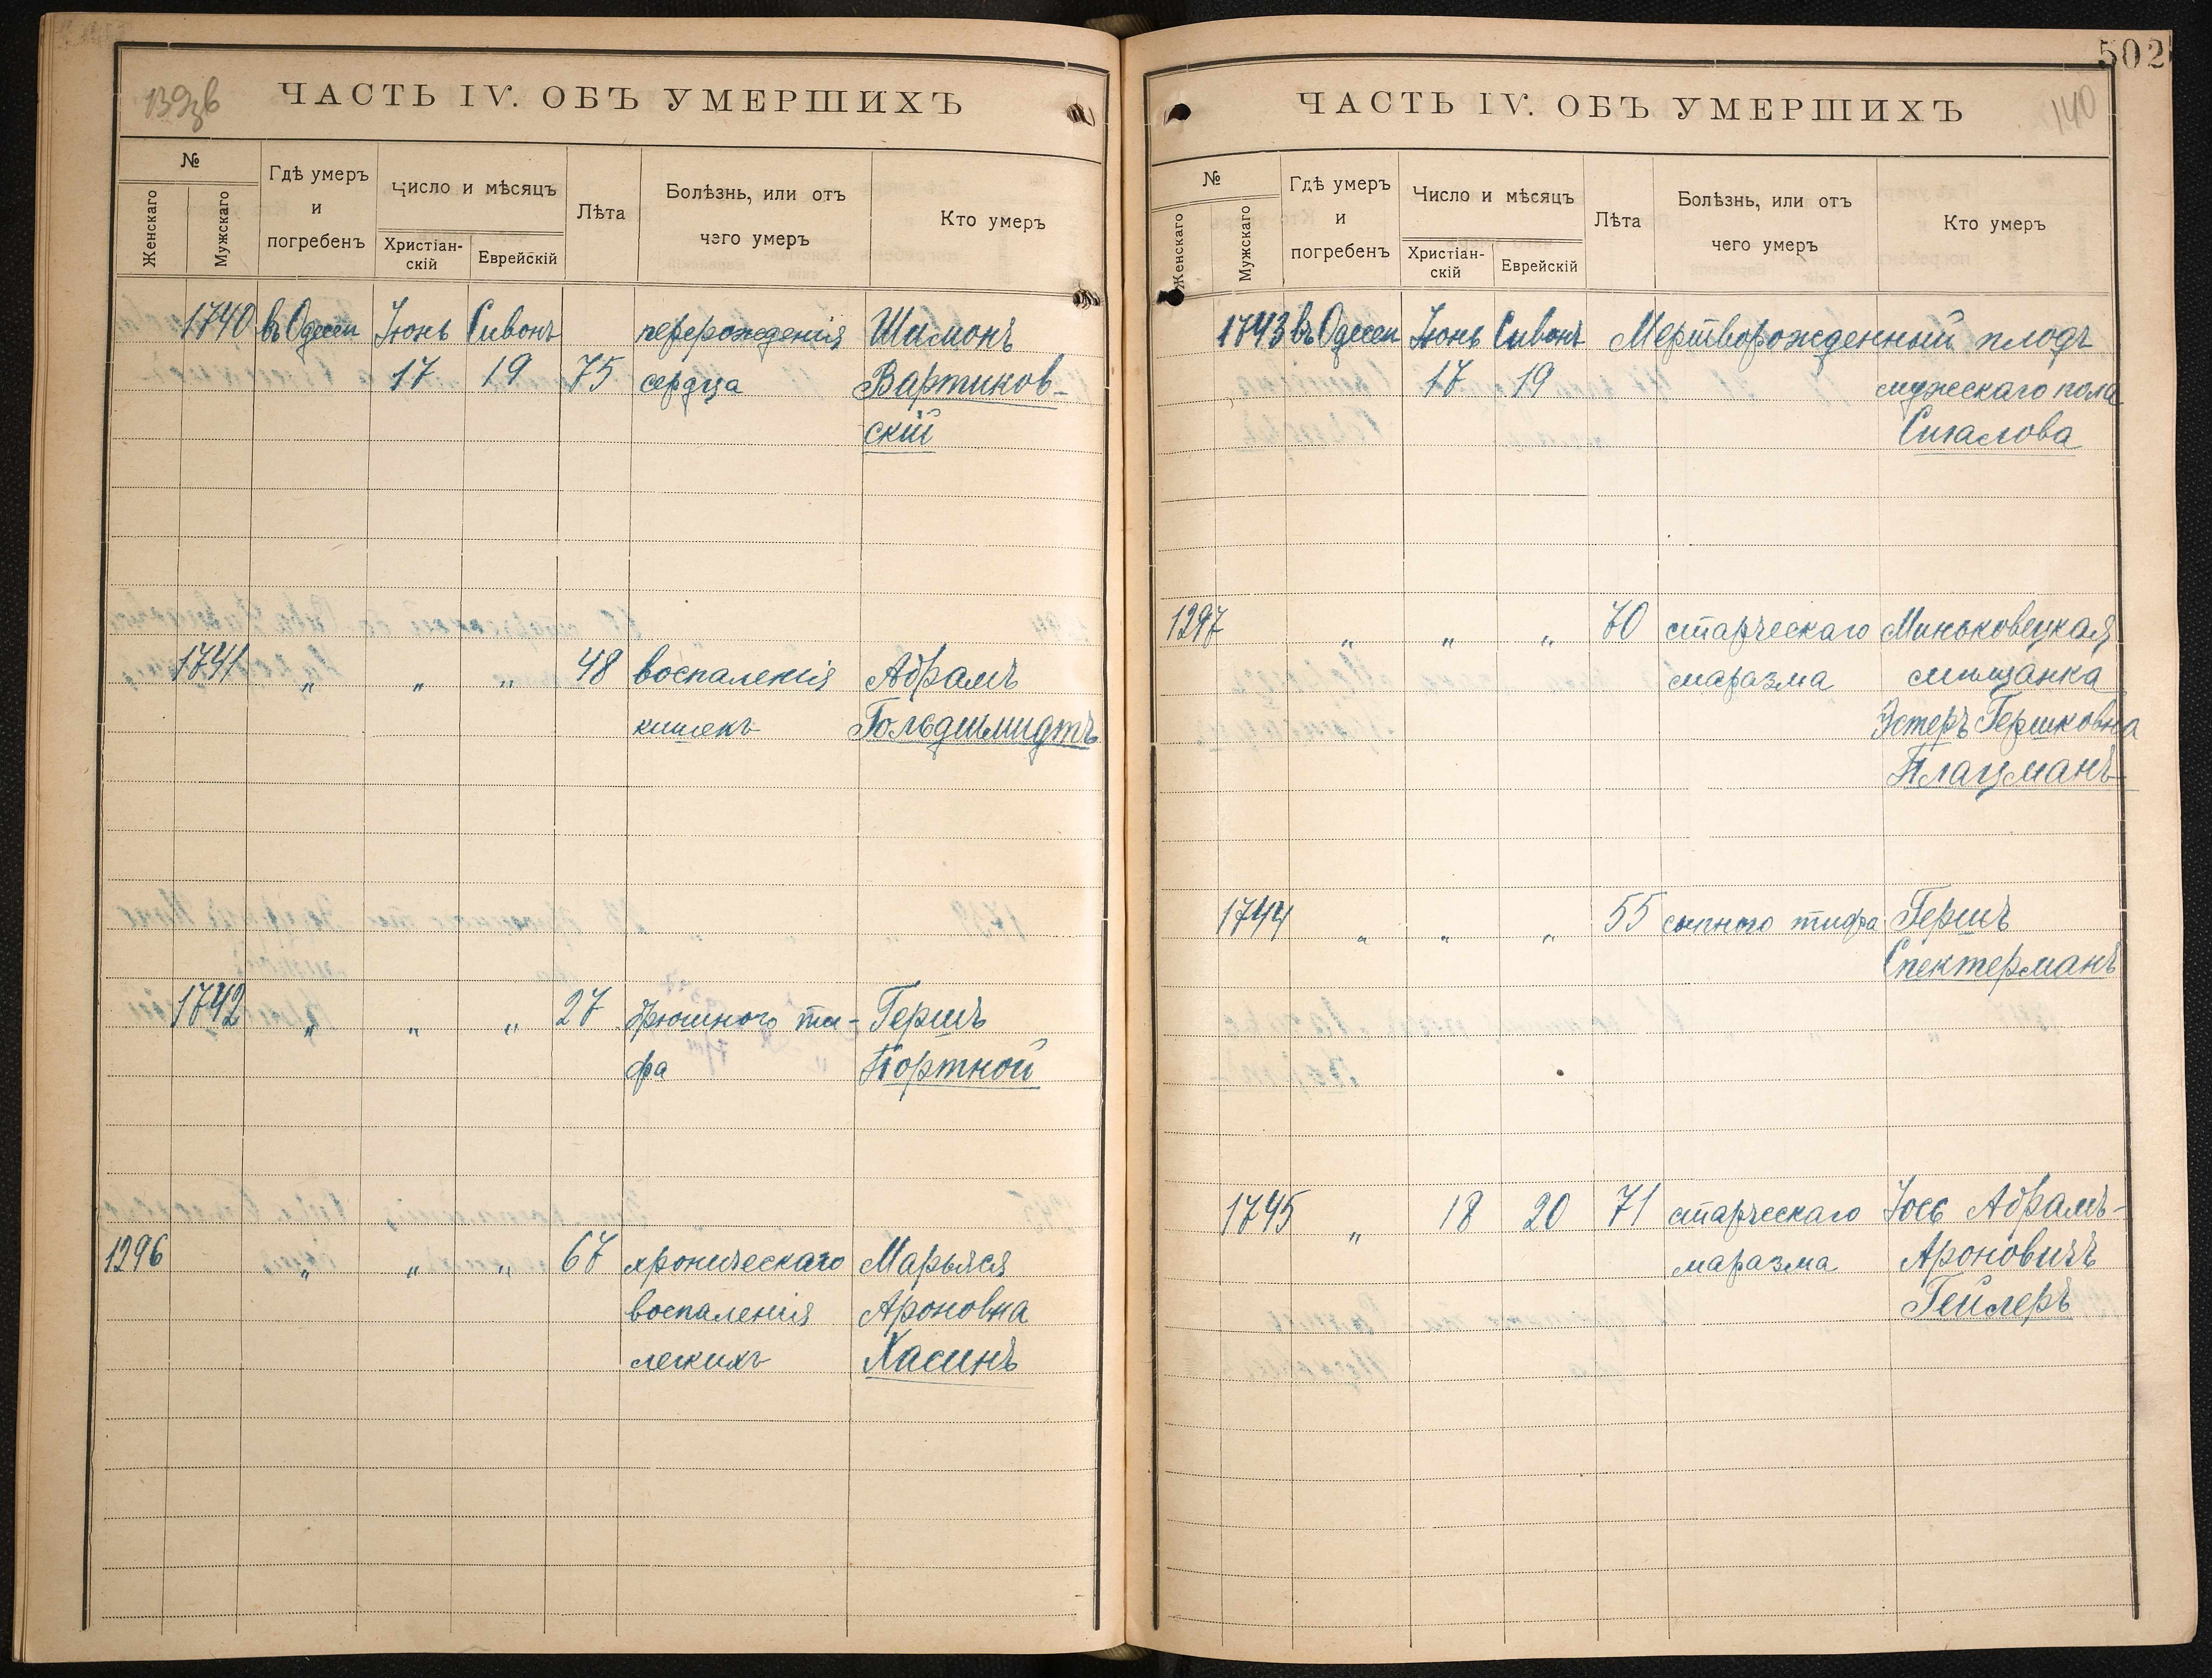 139зв
ЧАСТЬ IV. ОБЪ УМЕРШИХЪ
№
Женскаго
Мужскаго
Гдѣ умеръ
и
погребенъ
Число и мѣсяцъ
Христіан-
скій
Еврейскій
Лѣта
Болѣзнь, или отъ
чего умеръ
Кто умеръ
1740 въ Одессѣ Іюнь Сивонъ перерожденія Шимонъ
17 19 75 сердца Вартиков-
скій
1741 „ „ „ 48 воспаленія Абрамъ
кишекъ Гольдшмидтъ
1742 „ „ „ 27 брюшного ти- Гершъ
фа Портной
1296 „ „ „ 67 хроническаго Марьяся
воспаленія Ароновна
легкихъ Хасинъ
502
140
ЧАСТЬ IV. ОБЪ УМЕРШИХЪ
№
Женскаго
Мужскаго
Гдѣ умеръ
и
погребенъ
Число и мѣсяцъ
Христіан-
скій
Еврейскій
Лѣта
Болѣзнь, или отъ
чего умеръ
Кто умеръ
1743 въ Одессѣ Іюнь Сивонъ Мертворожденный плодъ
17 19 мужескаго пола
Сигалова
1297 „ „ „ 70 старческаго Миньковецкая
маразма мѣщанка
Эстеръ Гершковна
Плацманъ
1744 „ „ „ 55 сыпного тифа Гершъ
Спектерманъ
1745 „ 18 20 71 старческаго Іосъ Абрамъ-
маразма Ароновичъ
Гейлеръ